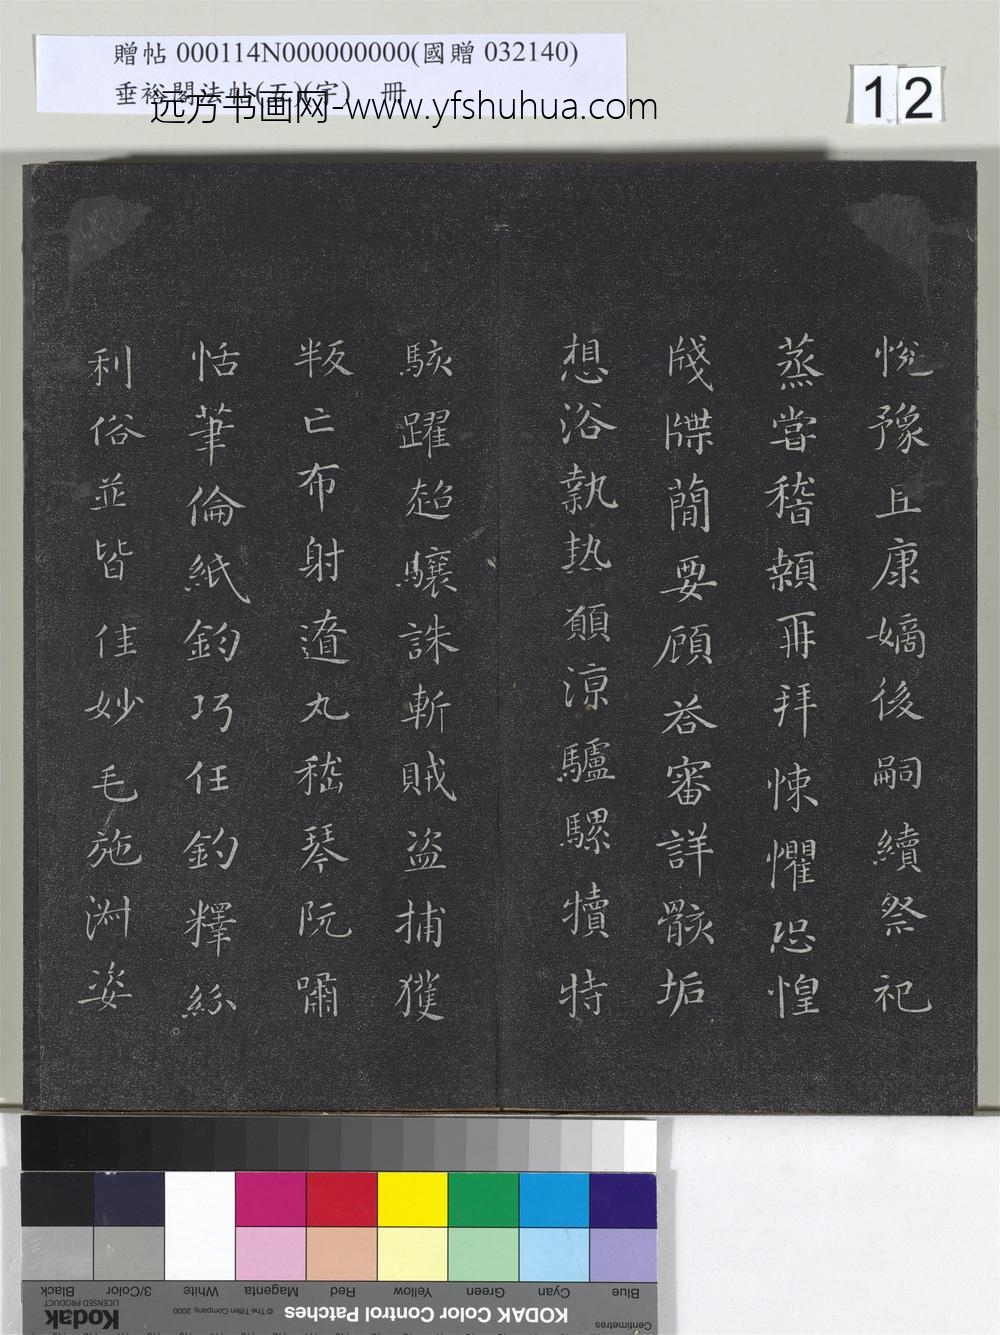 贈帖 000114N000000000(國贈 032140)
垂裕閣法帖(五)(字) 冊
远方书画网-www.yfshuhua.com
12
悅豫且康嫡後嗣續祭祀
蒸嘗稽顙再拜悚懼恐惶
牋牒簡要顧答審詳骸垢
想浴執熱願涼驢騾犢特
駭躍超驤誅斬賊盗捕獲
叛亡布射遼丸嵇琴阮嘯
恬筆倫紙鈞巧任釣釋紛
利俗並皆佳妙毛施淑姿
Blue Cyan Green Yellow Red Magenta White 3/Color Black
KODAK Color Control Patches
© The Tiffen Company, 2000
Kodak
LICENSED PRODUCT
Centimetres